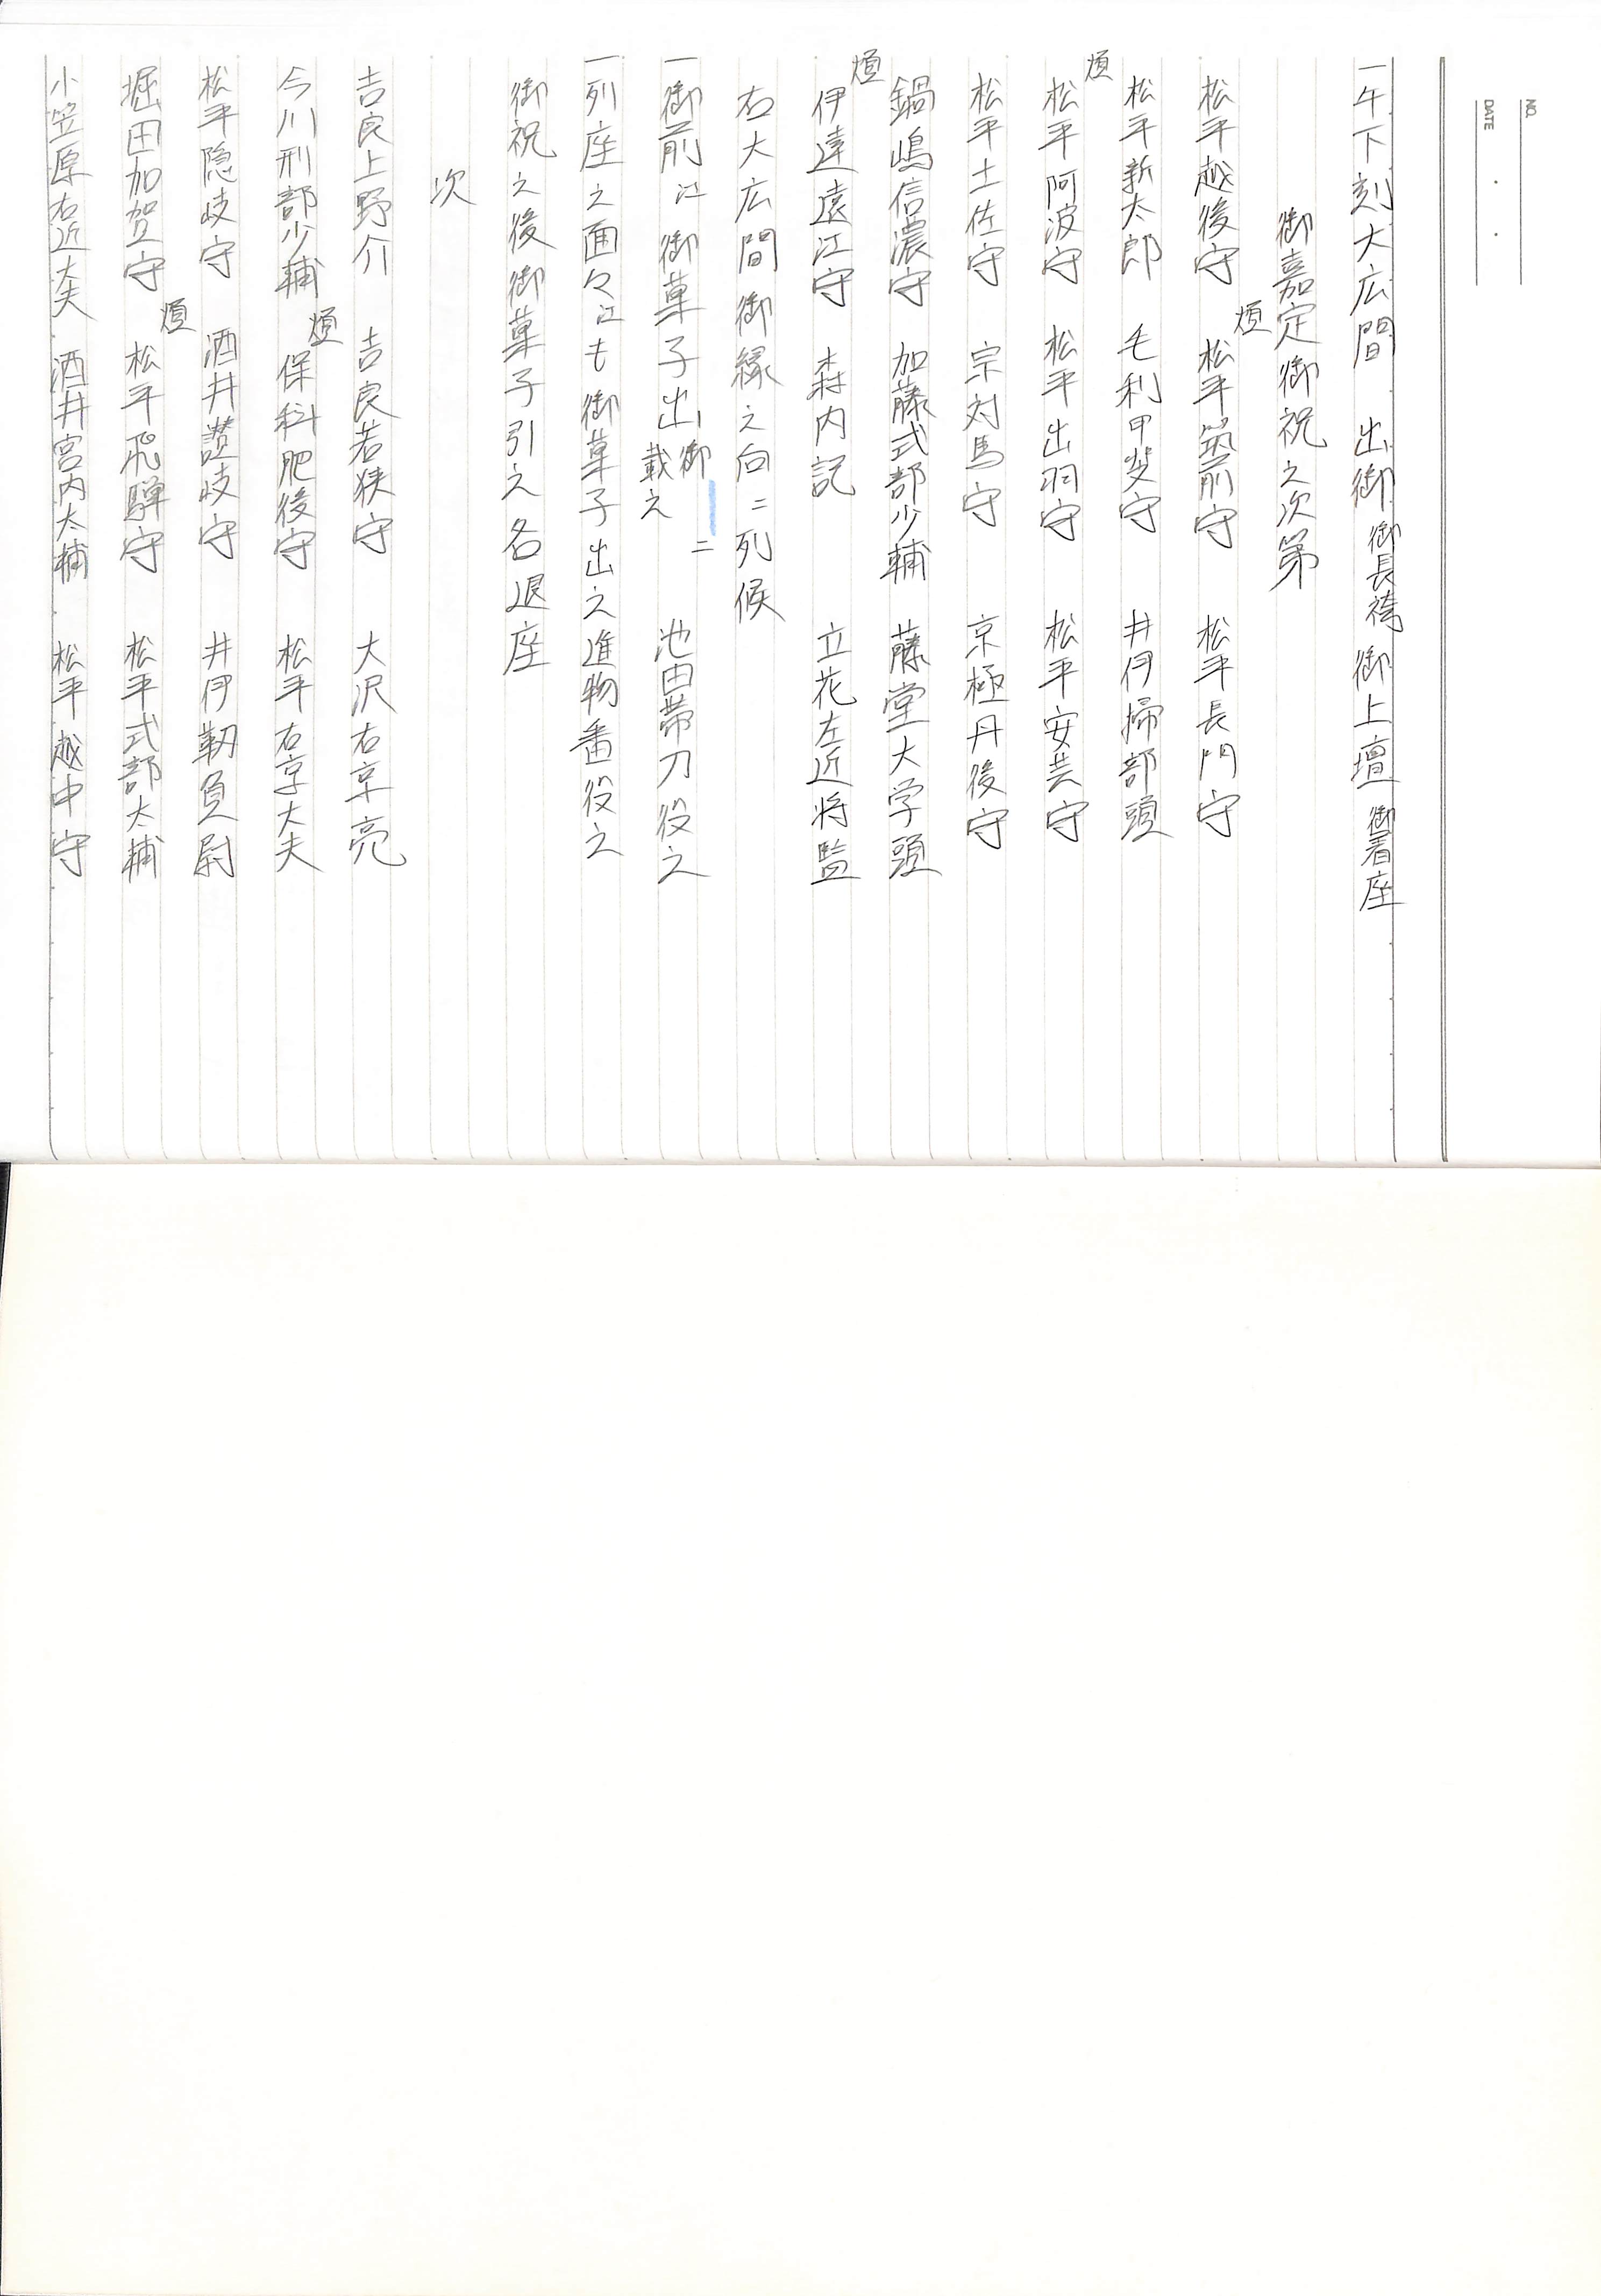 NO.
DATE
一午下刻大広間　出御 御長袴 御上壇 御着座
御嘉定御祝之次第
松平越後守　煩 松平筑前守　松平長門守
松平新太郎　毛利甲斐守　井伊掃部頭
煩 松平阿波守　松平出羽守　松平安芸守
松平土佐守　宗対馬守　京極丹後守
鍋嶋信濃守　加藤式部少輔　藤堂大学頭
煩 伊達遠江守　森内記　立花左近将監
右大広間御縁之向ニ列候
一御前江御菓子出御載之ニ　池田帯刀役之
一列座之面々江も御菓子出之進物番役之
御祝之後御菓子引之各退座
次
吉良上野介　吉良若狭守　大沢右京亮
今川刑部少輔　煩 保科肥後守　松平右京大夫
松平隠岐守　酒井讃岐守　井伊靱負尉
堀田加賀守　煩 松平飛騨守　松平式部太輔
小笠原右近大夫　酒井宮内太輔　松平越中守